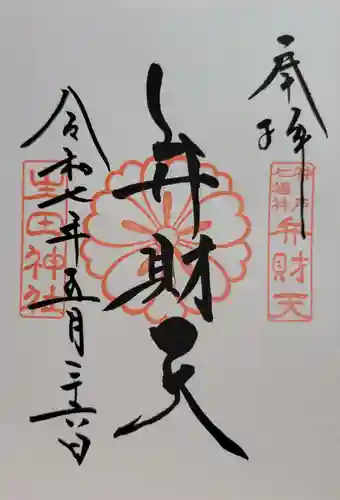 奉拝
神戸七福神
弁財天
弁財天
生田神社
令和七年五月二十六日